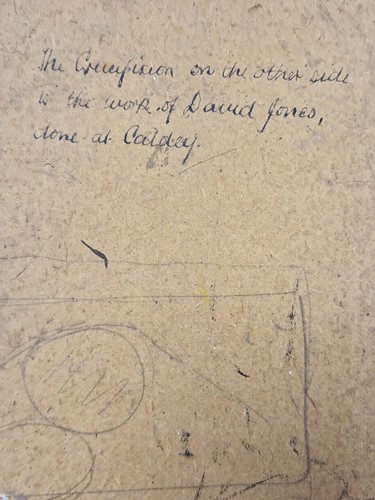 The Crucifixion on the other side
is the work of David Jones,
done at Caldey.